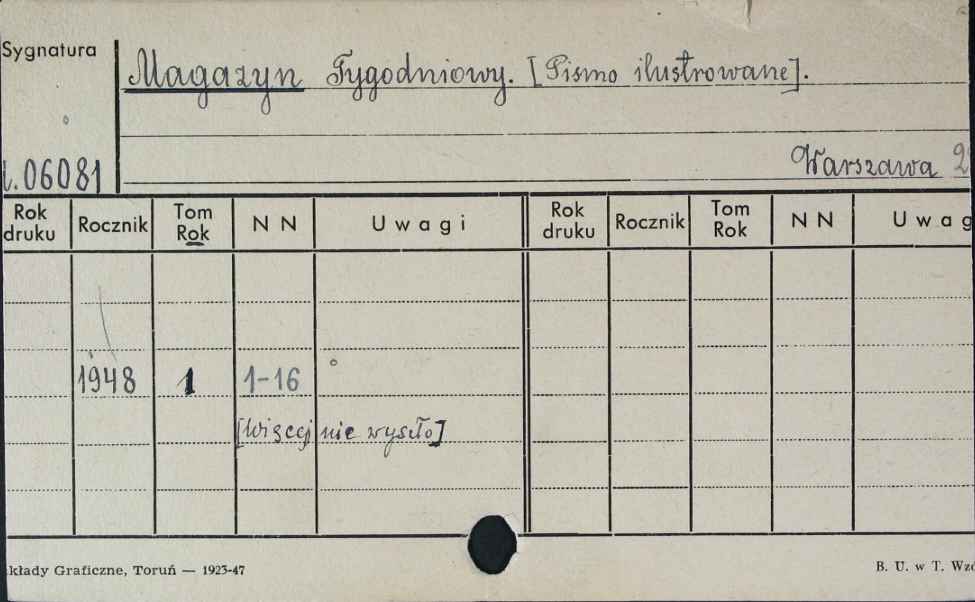 Sygnatura
Magazyn Tygodniowy. [Pismo ilustrowane].
.06081
Warszawa
Rok druku Rocznik Tom Rok N N Uwagi Rok druku Rocznik Tom Rok N N Uwag
1948 1 1-16
[Więcej nie wyszło]
kłady Graficzne, Toruń — 1923-47 B. U. w T. Wzó